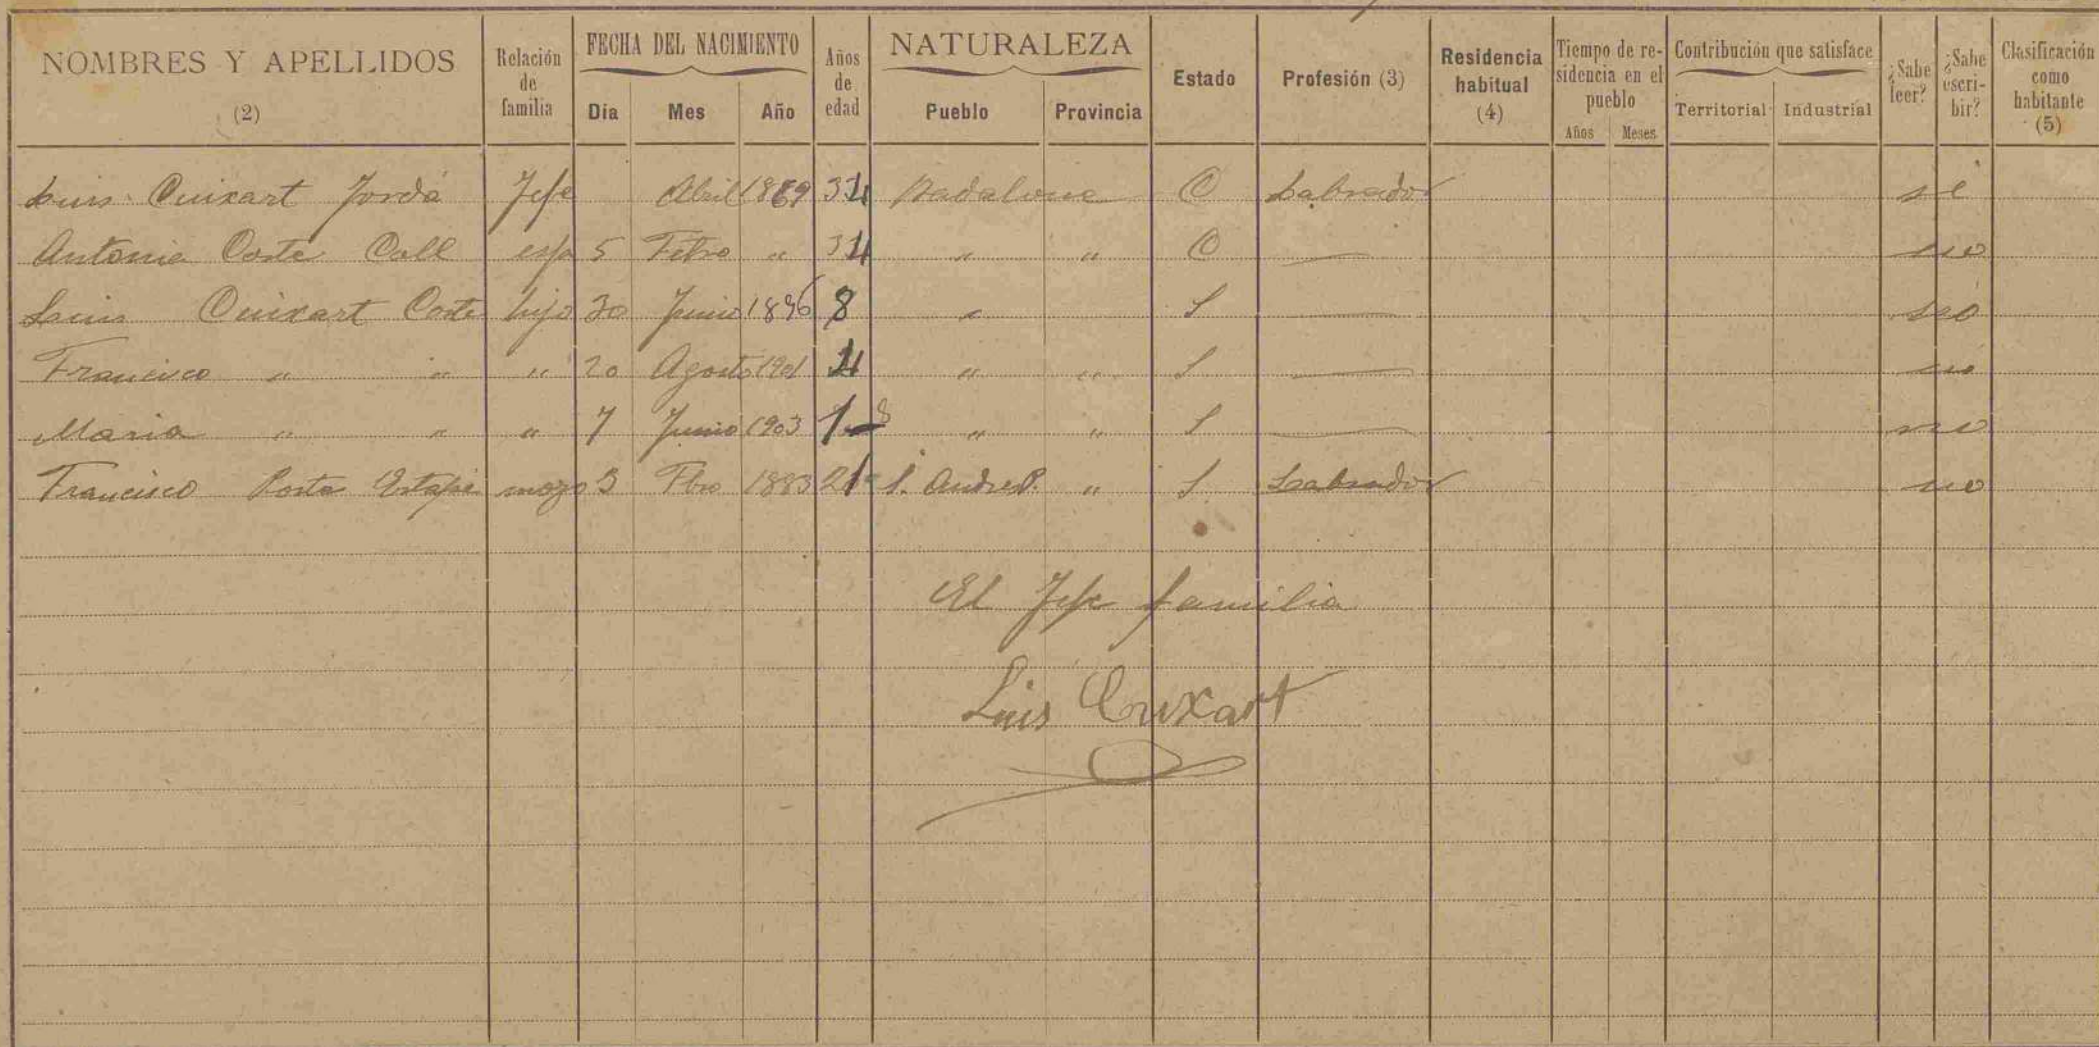 NOMBRES Y APELLIDOS (2) Relación de familia FECHA DEL NACIMIENTO Día Mes Año Años de edad NATURALEZA Pueblo Provincia Estado Profesión (3) Residencia habitual (4) Tiempo de residencia en el pueblo Años Meses Contribución que satisface Territorial Industrial ¿Sabe leer? ¿Sabe escribir? Clasificación como habitante (5)
Luis Cuixart Jordá Jefe Abril 1869 34 Badalona C Labrador si
Antonia Costa Coll espa 5 Febro " 34 " " C — no
Luis Cuixart Costa hijo 30 Junio 1896 8 " S — no
Francisco " " " 20 Agosto 1901 4 " " S — no
Maria " " " 7 Junio 1903 1 " " S — no
Francisco Costa Estapé mozo 3 Fbro 1883 21 S. Andres P. " S Labrador no
El Jefe familia
Luis Cuxart